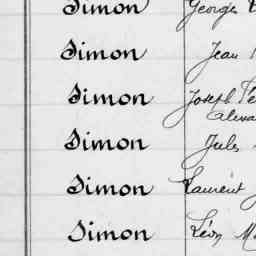 Simon Georges
Simon Jean
Simon Joseph
Simon Jules
Simon Laurent
Simon Léon